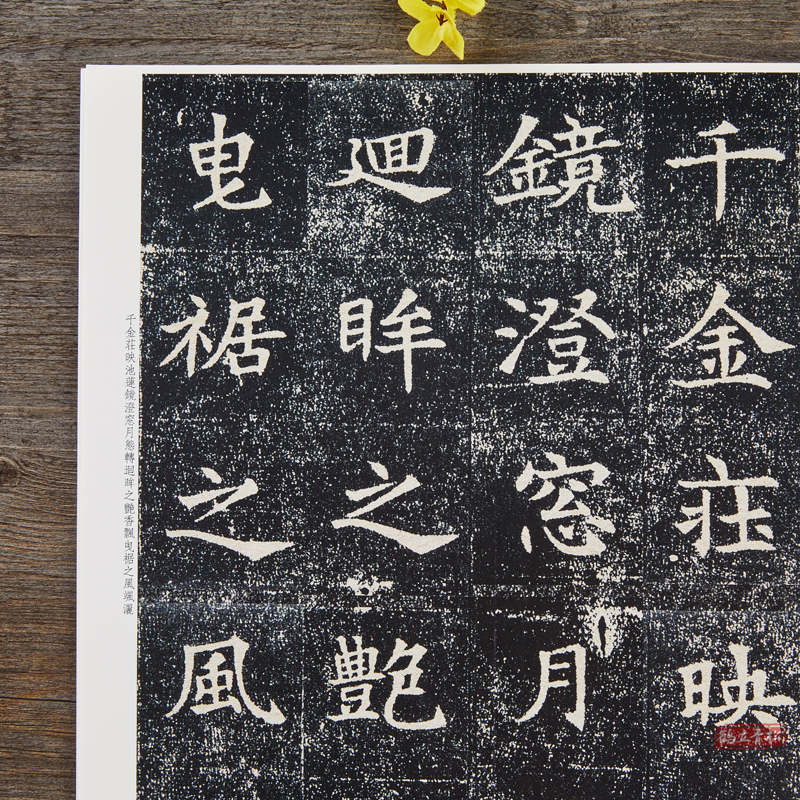 千金莊映
鏡澄窓月
迴眸之艷
曳裾之風
千金莊映池蓮鏡澄窓月態轉迴眸之艷香飄曳裾之風颯灑